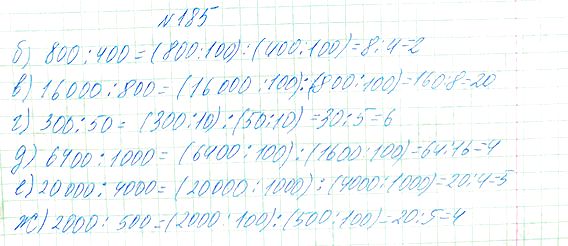 №185
б) 800:400=(800:100):(400:100)=8:4=2
в) 16000:800=(16000:100):(800:100)=160:8=20
г) 300:50=(300:10):(50:10)=30:5=6
д) 6400:1000=(6400:100):(1600:100)=64:16=4
е) 20000:4000=(20000:1000):(4000:1000)=20:4=5
ж) 2000:500=(2000:100):(500:100)=20:5=4